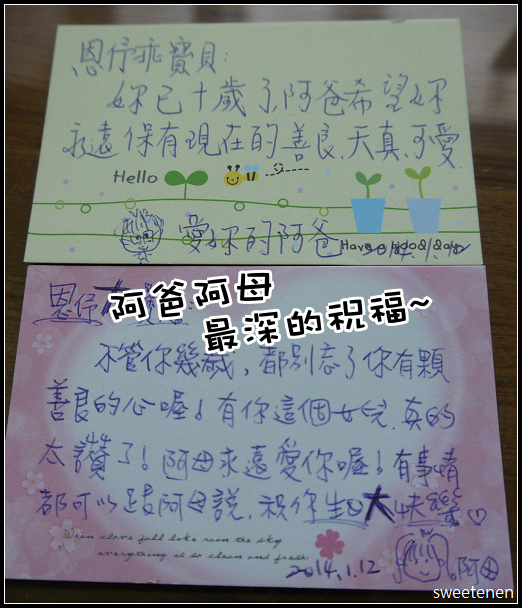 恩伃乖寶貝:
妳已十歲了,阿爸希望妳
永遠保有現在的善良、天真、可愛
Hello
愛妳的阿爸
Have a good day
阿爸阿母
最深的祝福~
恩伃
不管你幾歲,都別忘了你有顆
善良的心喔!有你這個女兒,真的
太讚了!阿母永遠愛你喔!有事情
都可以跟阿母說,祝你生日大快樂♡
When clove full loke rain the sky
everything is so clean and fresh
2014.1.12
阿母
sweetenen